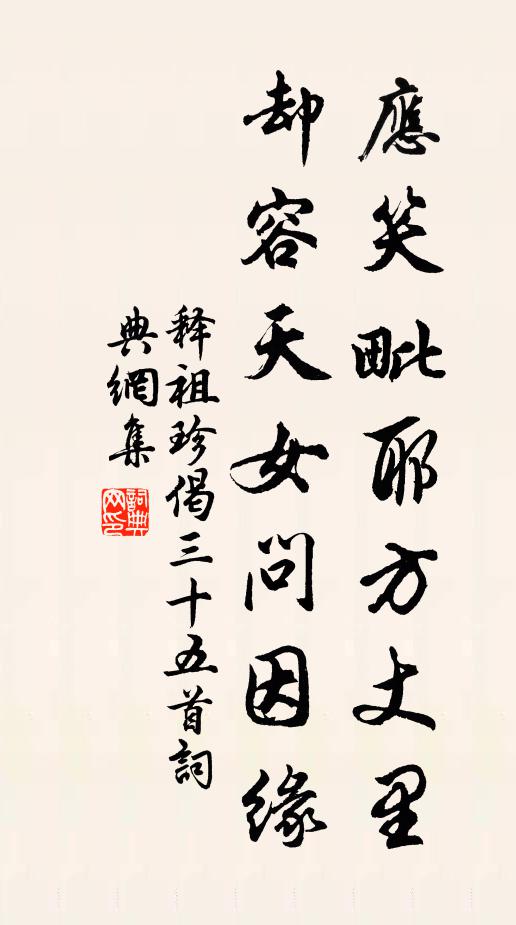 應笑毗耶方丈里
却容天女問因緣
释祖珍偈三十五首詞
典網集
詞典网印